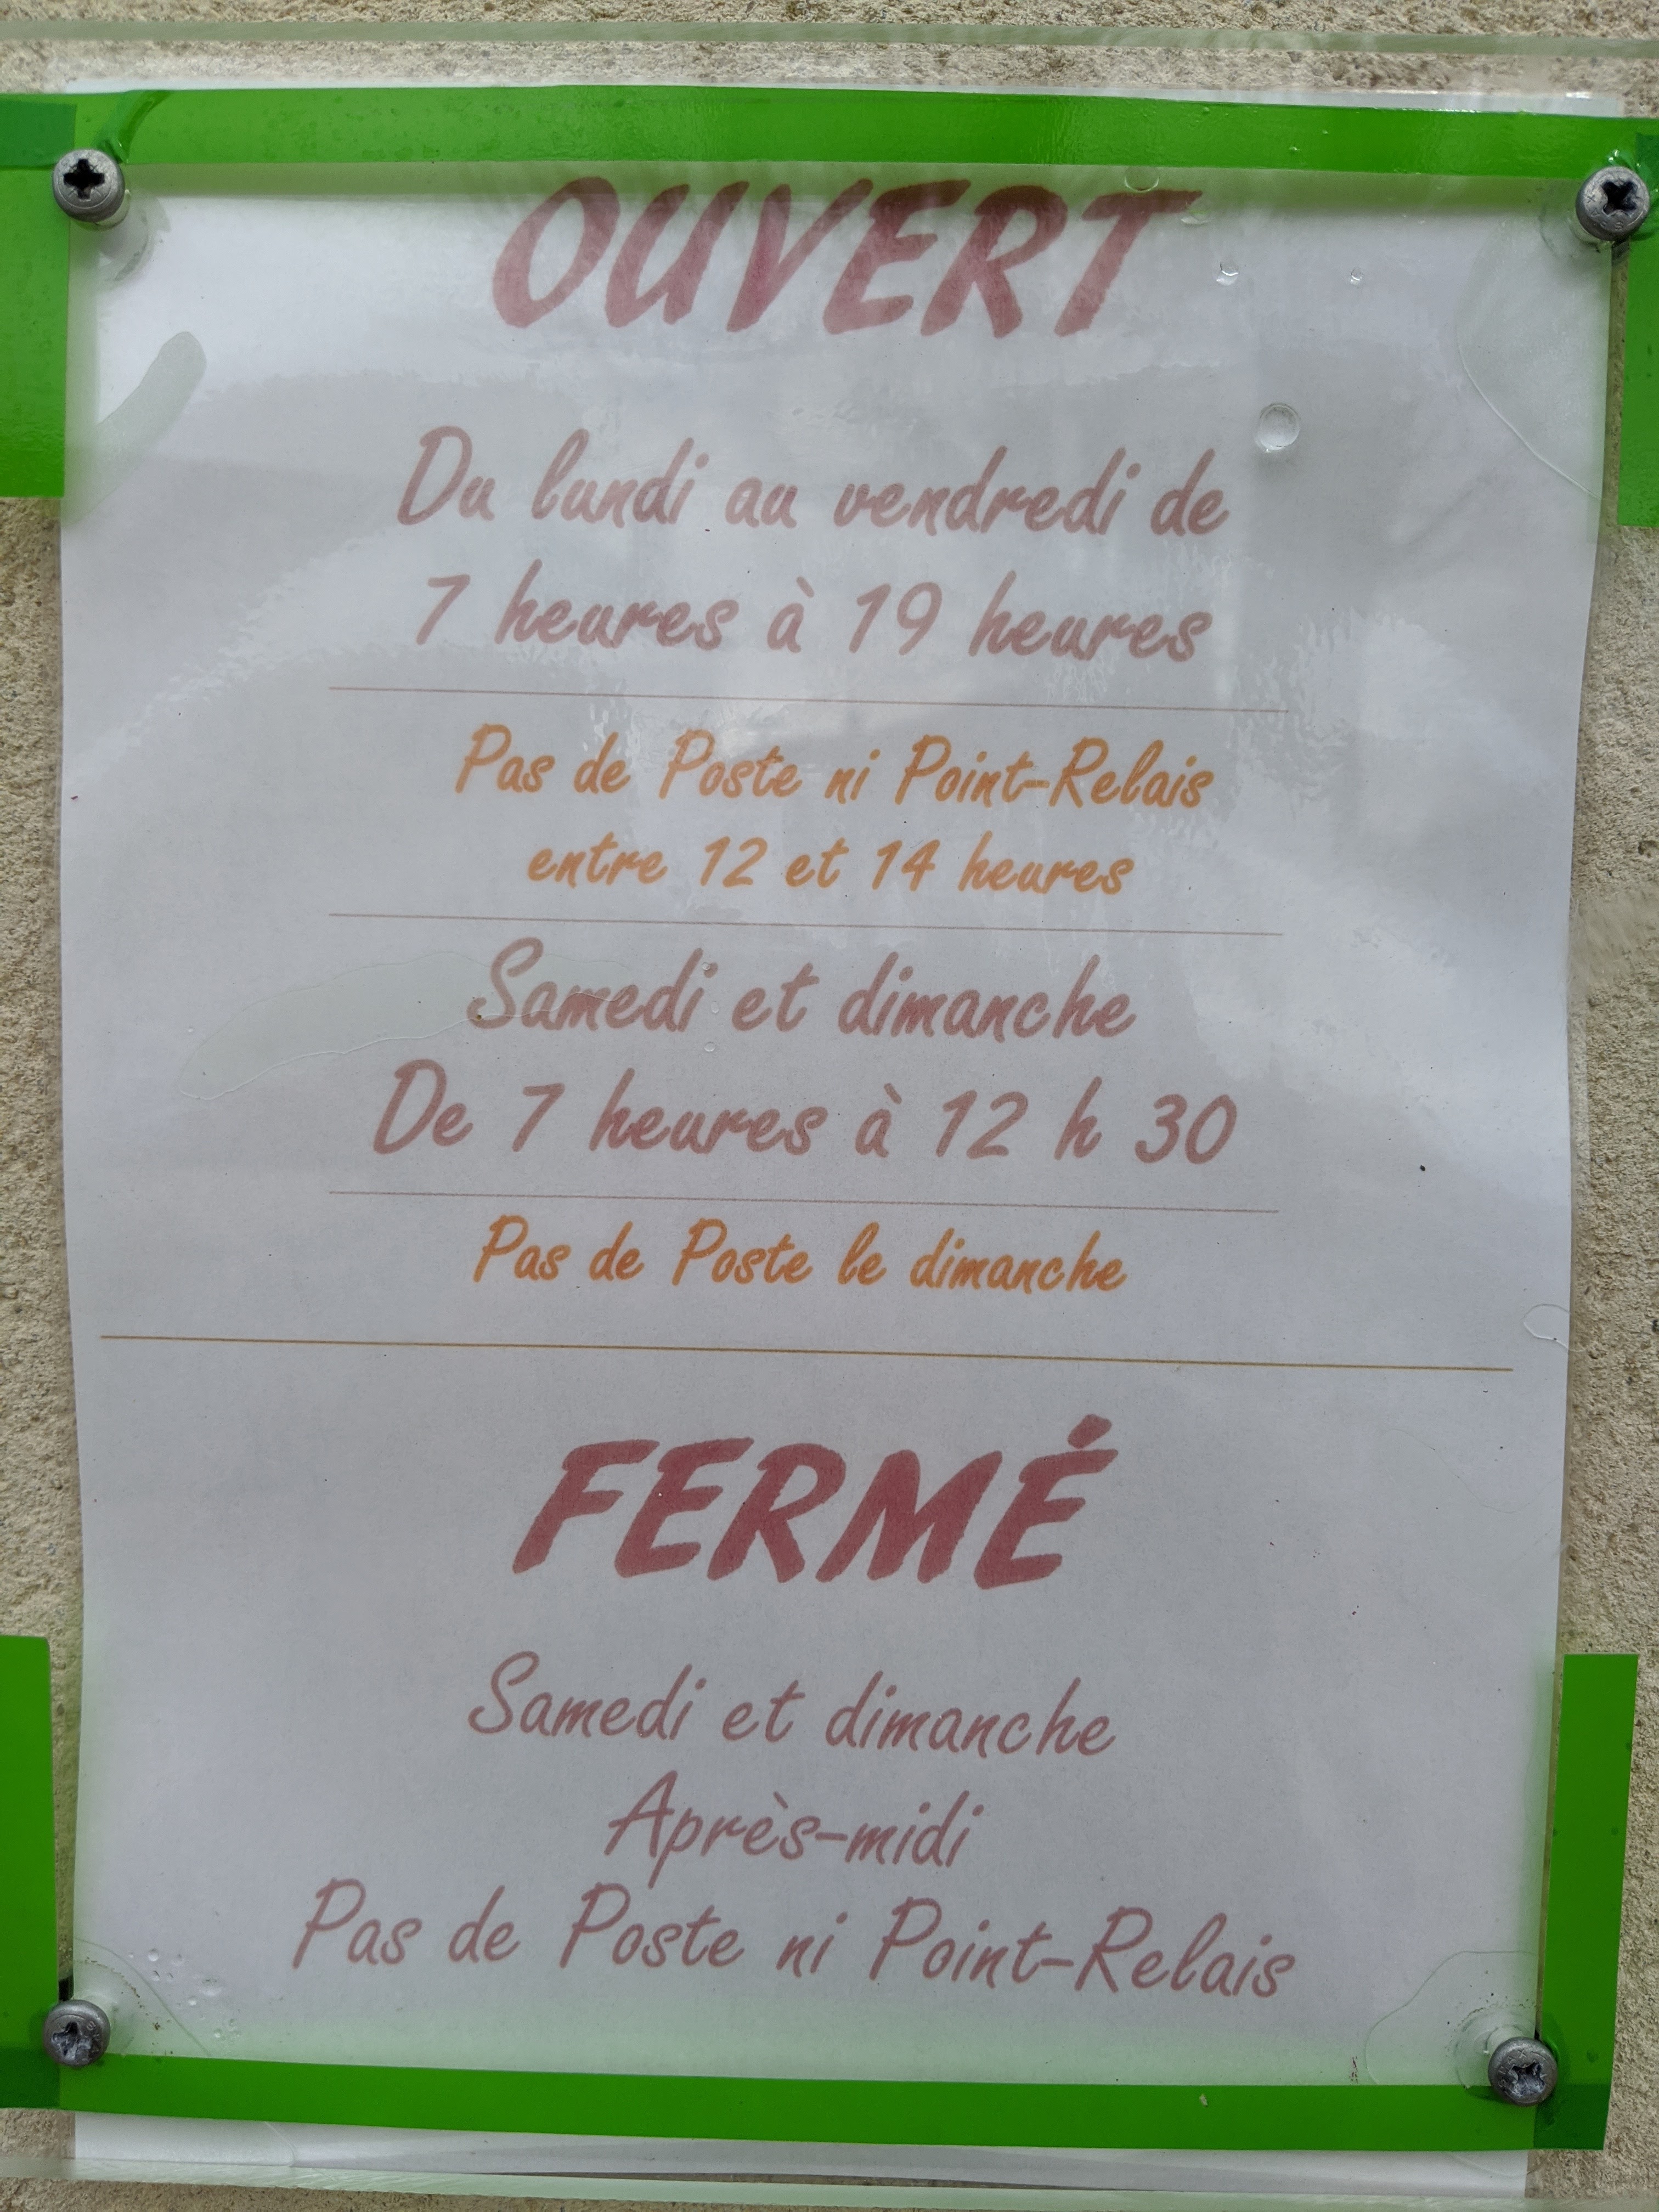 OUVERT
Du lundi au vendredi de
7 heures à 19 heures
Pas de Poste ni Point-Relais
entre 12 et 14 heures
Samedi et dimanche
De 7 heures à 12 h 30
Pas de Poste le dimanche
FERMÉ
Samedi et dimanche
Après-midi
Pas de Poste ni Point-Relais